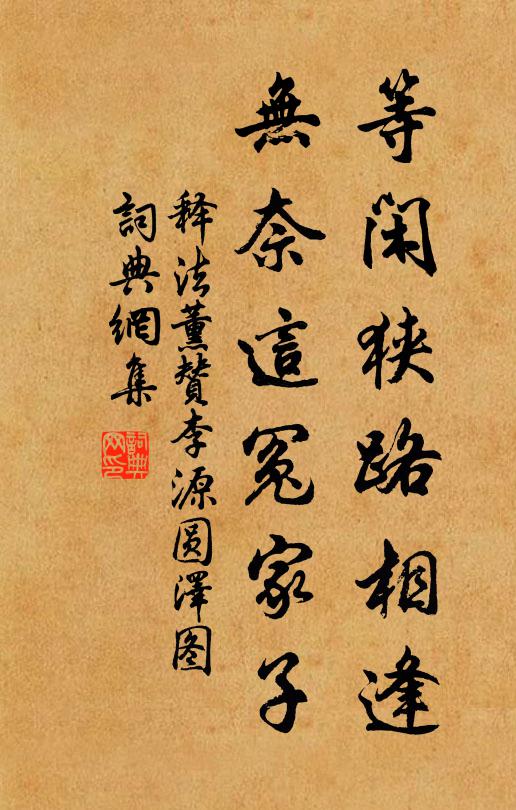 等闲狹路相逢
無奈這冤家子
释法薰贊李源圆澤图
詞典網集
詞典網印